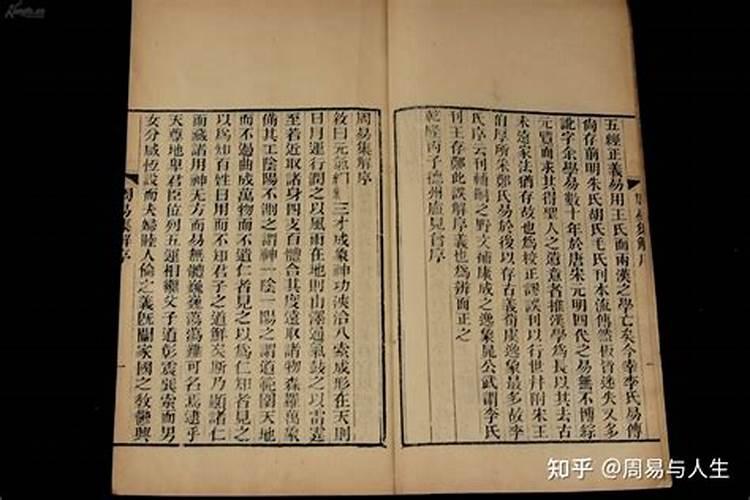 五經正義易用王氏而兩漢之學亡矣今幸李氏易傳
尚存前明朱氏胡氏毛氏刊本流傳然板皆迷失又多
訛字余學易數十年於唐宋元明四代之易無不博綜
元覽而求其得聖人之遺意者推漢學爲長以其去古
未遠家法猶存故也爲校正謬誤刊以行世并附朱王
伯厚所采鄭氏易於後以存古義荀虞逸象最多故李
氏序云刊輔嗣之野文補康成之逸象晁公武謂李氏
刊王存鄭此誤解序義也爲辨而正之
乾隆丙子德州盧見曾序
周易集解序
周易集解序
敘曰元氣絪縕三才成象神功浹洽八索成形在天則
日月運行潤之以風雨在地則山澤通氣鼓之以雷霆
至若近取諸身四支百體合其度遠取諸物森羅萬象
備其工陰陽不測之謂神一陰一陽之謂道範圍天地
而不過曲成萬物而不遺仁者見之以爲仁知者見之
以爲知百姓日用而不知君子之道鮮矣斯乃顯諸仁
而藏諸用神无方而易無體巍巍蕩蕩難可名焉逮乎
天尊地卑君臣位列五運相繼父子道彰震巽索而男
女分咸恆設而夫婦睦人倫之義旣闡家國之敎鬱興
周易集解序
知乎 @周易与人生